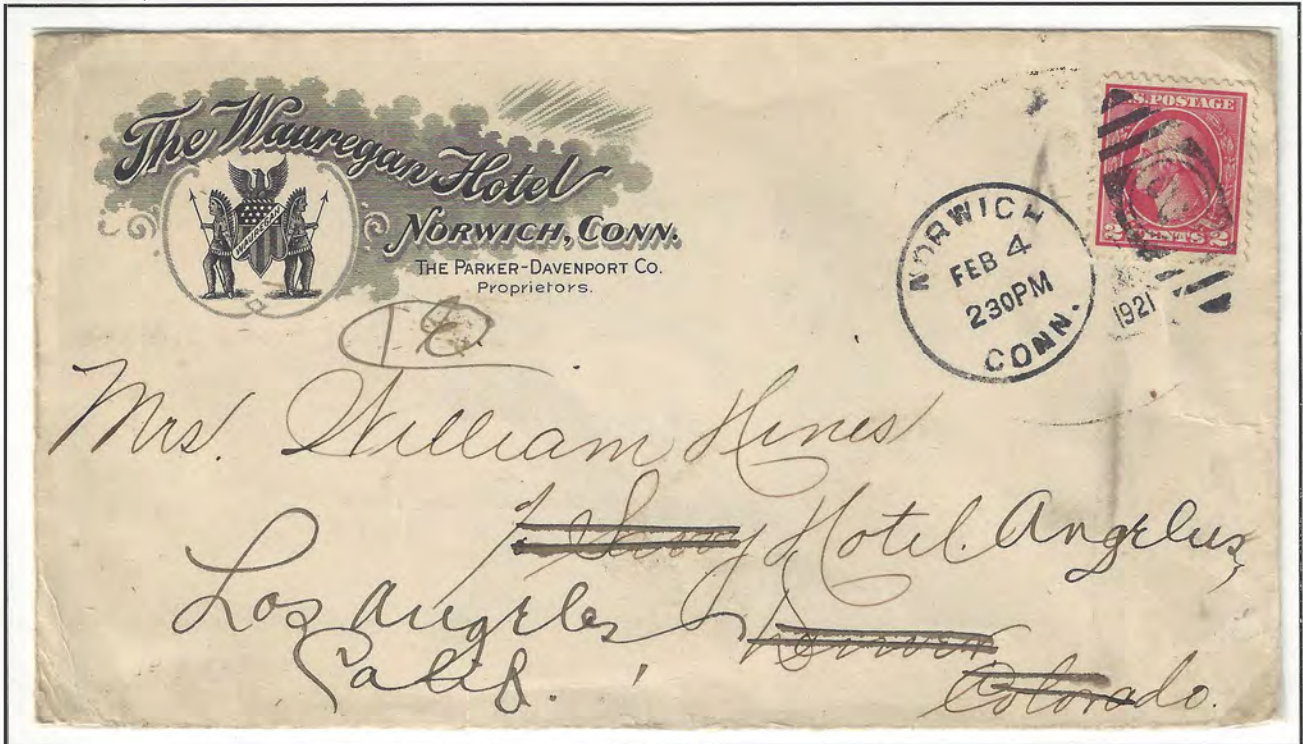 The Wauregan Hotel
WAUREGAN
NORWICH, CONN.
THE PARKER-DAVENPORT CO.
Proprietors.
U.S. POSTAGE
2 CENTS 2
NORWICH
FEB 4
230PM
CONN.
1921
Mrs. William Hines
Savoy Hotel. Angelus,
Los Angeles Denver
Calif. Colorado.